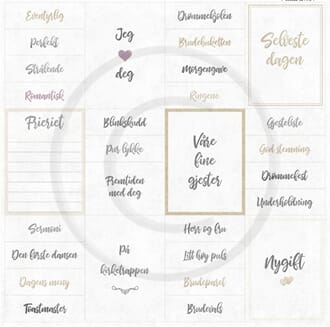 Eventyrlig
Perfekt
Strålende
Romantisk
Jeg
deg
Drømmekjolen
Brudebuketten
Morgengave
Ringene
Selveste
dagen
Frieriet
Blinkskudd
Pur lykke
Fremtiden
med deg
Våre
fine
gjester
Gjesteliste
God stemning
Drømmefest
Underholdning
Sermoni
Den første dansen
Dagens meny
Toastmaster
På
kirketrappen
Herr og fru
Litt høy puls
Brudeparet
Brudevals
Nygift